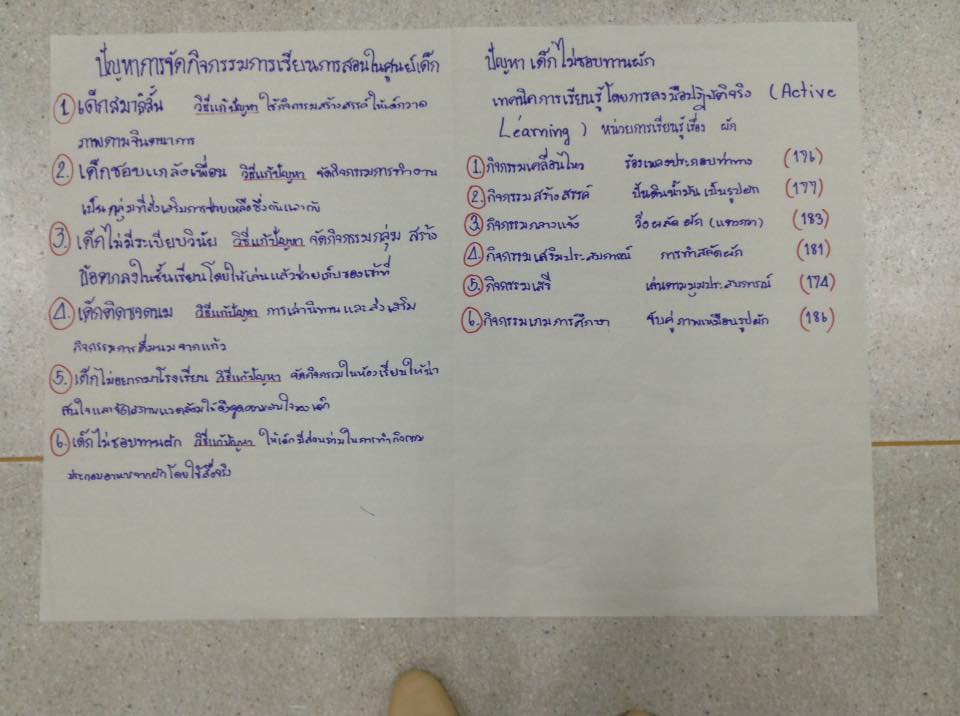 ปัญหาการจัดกิจกรรมการเรียนการสอนในศูนย์เด็ก
1. เด็กสมาธิสั้น วิธีแก้ปัญหา ใช้กิจกรรมสร้างสรรค์ ให้เด็กวาด
ภาพตามจินตนาการ
2. เด็กชอบแกล้งเพื่อน วิธีแก้ปัญหา จัดกิจกรรมการทำงาน
เป็นกลุ่มที่ส่งเสริมการช่วยเหลือซึ่งกันและกัน
3. เด็กไม่มีระเบียบวินัย วิธีแก้ปัญหา จัดกิจกรรมกลุ่ม สร้าง
ข้อตกลงในชั้นเรียนโดยให้เล่นแล้วช่วยเก็บของเข้าที่
4. เด็กติดขวดนม วิธีแก้ปัญหา การเล่านิทานและส่งเสริม
กิจกรรมการดื่มนมจากแก้ว
5. เด็กไม่อยากมาโรงเรียน วิธีแก้ปัญหา จัดกิจกรรมในห้องเรียนให้น่า
สนใจและจัดสภาพแวดล้อมให้ดึงดูดความสนใจของเด็ก
6. เด็กไม่ชอบทานผัก วิธีแก้ปัญหา ให้เด็กมีส่วนร่วมในการทำกิจกรรม
ประกอบอาหารจากผักโดยใช้สื่อจริง
ปัญหา เด็กไม่ชอบทานผัก
เทคนิคการเรียนรู้โดยการลงมือปฏิบัติจริง (Active
Learning) หน่วยการเรียนรู้เรื่อง ผัก
1. กิจกรรมเคลื่อนไหว ร้องเพลงประกอบท่าทาง (176)
2. กิจกรรมสร้างสรรค์ ปั้นดินน้ำมันเป็นรูปผัก (177)
3. กิจกรรมกลางแจ้ง วิ่งผลัดผัก (แตงกวา) (183)
4. กิจกรรมเสริมประสบการณ์ การทำสลัดผัก (181)
5. กิจกรรมเสรี เล่นตามมุมประสบการณ์ (174)
6. กิจกรรมเกมการศึกษา จับคู่ภาพเหมือนรูปผัก (186)